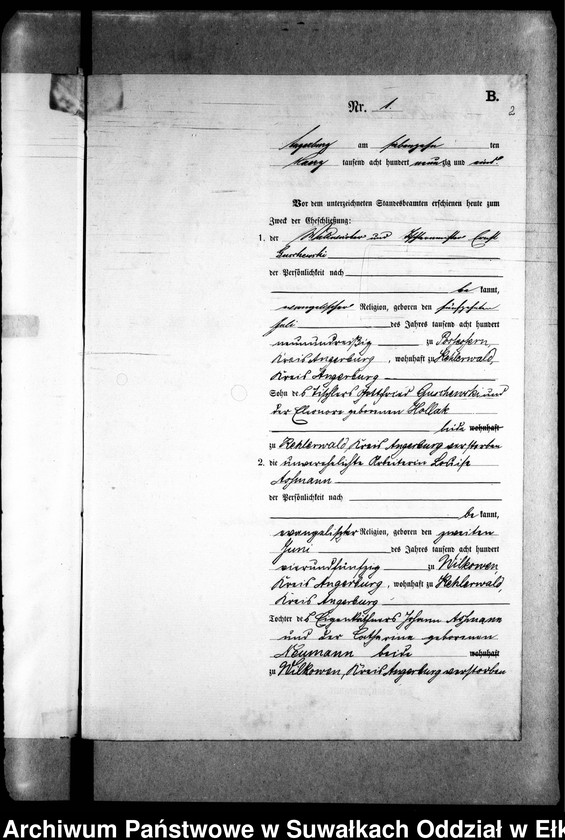 B.
Nr. 1.
2
Angerburg am siebenzehn ten
Maerz tausend acht hundert neunzig und eins.
Vor dem unterzeichneten Standesbeamten erschienen heute zum
Zweck der Eheschließung:
1. der und Ernst
Guschewski
der Persönlichkeit nach
be kannt,
evangelischer Religion, geboren den fünfzehnten
Juli des Jahres tausend acht hundert
neunundreißig zu Possessern,
Kreis Angerburg, wohnhaft zu Kehlerwald,
Kreis Angerburg
Sohn des Tischlers Gottfried Guschewski und
der Eleonore geborenen Hollak
beide wohnhaft
zu Kehlerwald, Kreis Angerburg verstorben
2. die unverehelichte Arbeiterin Louise
Aßmann
der Persönlichkeit nach
be kannt,
evangelischer Religion, geboren den zweiten
Juni des Jahres tausend acht hundert
vierundfünfzig zu Wilkowen,
Kreis Angerburg, wohnhaft zu Kehlerwald,
Kreis Angerburg
Tochter des Eigenkäthners Johann Aßmann
und der Catharine geborenen
Neumann beide wohnhaft
zu Wilkowen, Kreis Angerburg verstorben
Archiwum Państwowe w Suwałkach Oddział w Ełk